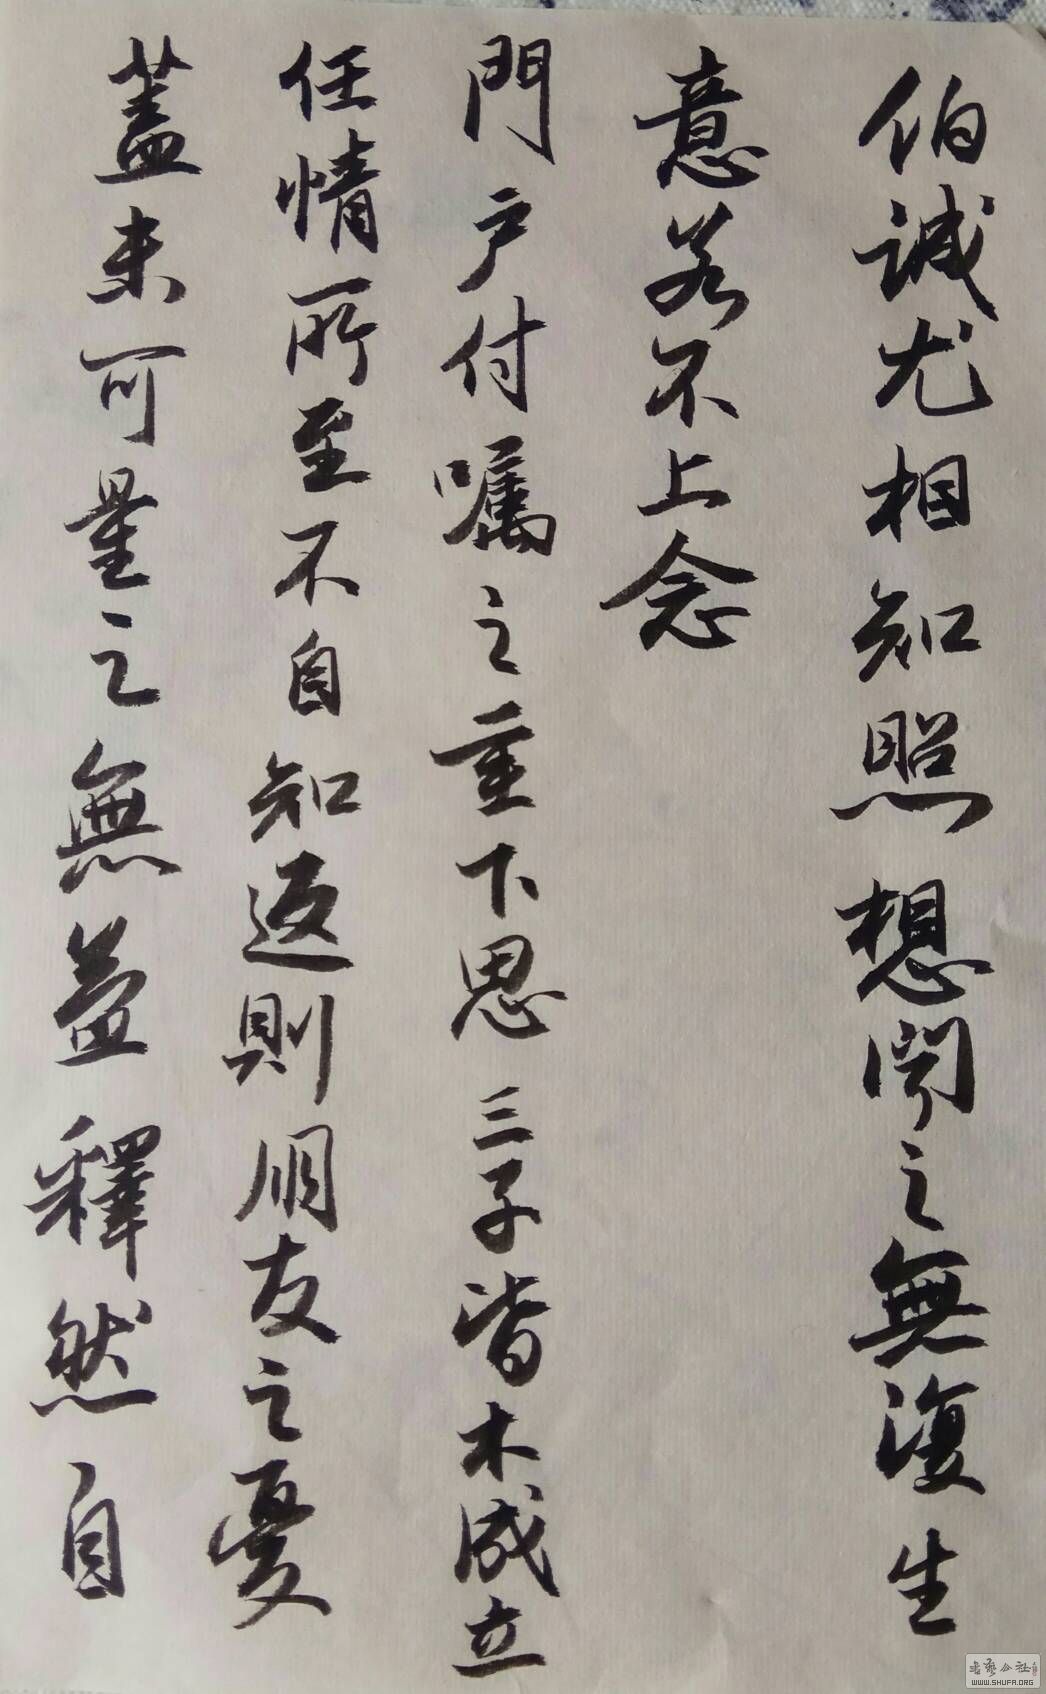 伯誠尤相知照想聞之無復生
意若不上念
門户付嘱之重下思三子皆未成立
任情所至不自知返則朋友之憂
蓋未可量之無益釋然自
書藝公社
WWW.SHUFA.ORG